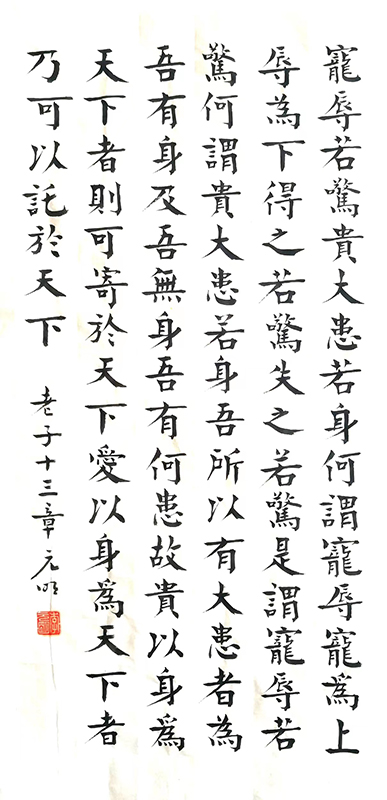 寵辱若驚貴大患若身何謂寵辱寵為上
辱為下得之若驚失之若驚是謂寵辱若
驚何謂貴大患若身吾所以有大患者為
吾有身及吾無身吾有何患故貴以身為
天下者則可寄於天下愛以身為天下者
乃可以託於天下
老子十三章 元明